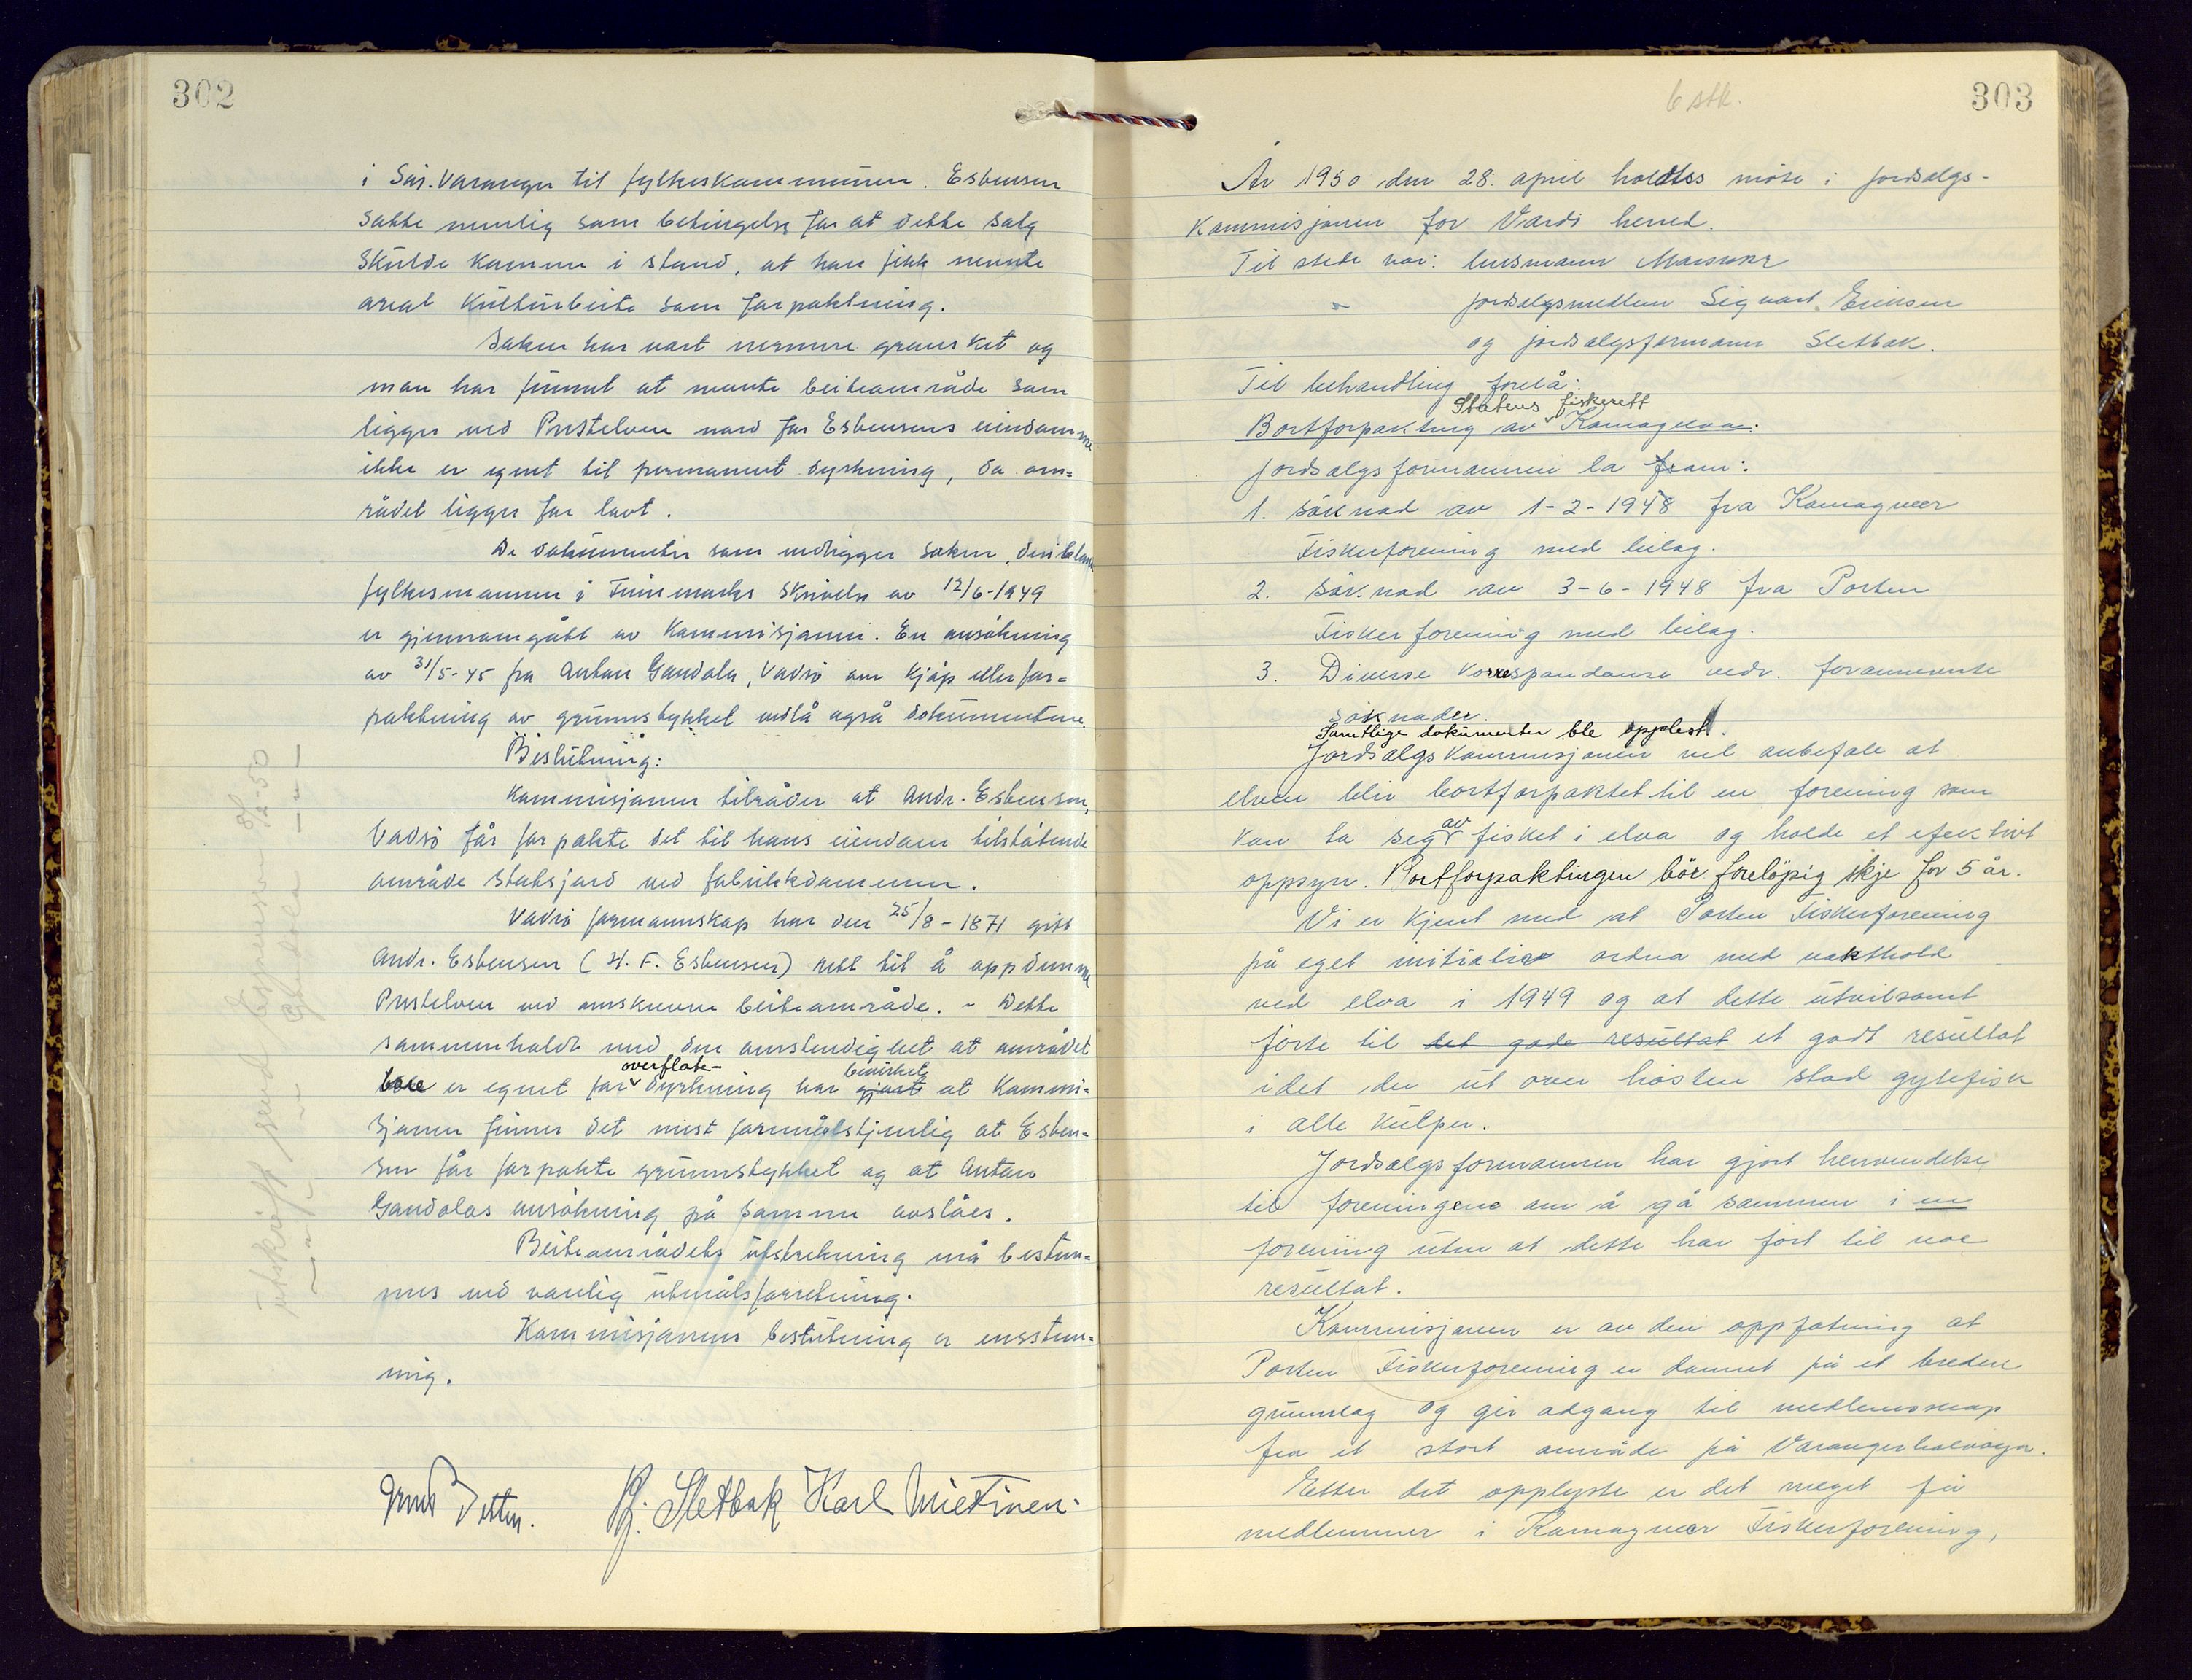 302
i Sør-Varanger til fylkeskommunen. Esbensen
satte nemlig som betingelse for at dette salg
skulde komme i stand, at han fikk nevnte
areal kulturbeite som forpaktning.
Saken har vært nermere gransket og
man har funnet at nevnte beiteområde som
ligger ved Prestelven nord for Esbensens eiendomme
ikke er egnet til permanent dyrkning, da om=
rådet ligger for lavt.
De dokumenter som vedligger saken, deriblant
fylkesmannen i Finnmarks skrivelse av 12/6-1949
er gjennomgått av Kommisjonen. En ansøkning
av 31/5-45 fra Anton Gandola, Vadsø om kjøp eller for=
paktning av grunnstykket vedlå også dokumentene.
Beslutning:
Kommisjonen tilråder at Andr. Esbensen,
Vadsø får forpakte det til hans eiendom tilstøtende
område statsjord ved fabrikkdammen.
Vadsø formannskap har den 25/8-1871 gitt
Andr. Esbensen (H. F. Esbensen) rett til å oppdemme
Prestelven ved omskrevne beiteområde. - Dette
sammenholdt med den omstendighet at området
overflate- bevirket
bare er egnet for dyrkning har gjort at Kommi=
sjonen finner det mest formålstjenlig at Esben=
sen får forpakte grunnstykket og at Anton
Gandolas ansøkning på samme avslåes.
Beiteområdets utstrekning må bestem=
mes ved vanlig utmålsforretning.
Kommisjonens beslutning er enstem=
mig.
Pf. Sletbak Karl Mietinen.
Utskrift send Esbensen 8/2-50
-"- -"- Gandola -"-
6 stk.
303
År 1950 den 28. april holdtes møte i jordsalgs-
kommisjonen for Vardø herred.
Til stede var: lensmann
- jordsalgsmedlem Sigvart Eriksen
og jordsalgsformann Sletbak.
Til behandling forelå:
Statens fiskerett
Bortforpaktning av Komagelva:
Jordsalgsformannen la fram:
1. søknad av 1-2-1948 fra Komagvær
Fiskerforening med bilag.
2. søknad av 3-6-1948 fra Porten
Fiskerforening med bilag.
3. Diverse korrespondanse vedr. forannevnte
søknader.
Samtlige dokumenter ble opplest.
Jordsalgskommisjonen vil anbefale at
elven blir bortforpaktet til en forening som
kan ta seg av fisket i elva og holde et efektivt
oppsyn. Bortforpaktingen bør foreløpig skje for 5 år.
Vi er kjent med at Porten Fiskerforening
på eget initiativ ordna med vakthold
ved elva i 1949 og at dette utvilsomt
førte til det gode resultat et godt resultat
idet der ut over høsten stod gytefisk
i alle kulper.
Jordsalgsformannen har gjort henvendelse
til foreningene om å gå sammen i en
forening uten at dette har ført til noe
resultat.
Kommisjonen er av den oppfatning at
Porten Fiskerforening er dannet på et bredere
grunnlag og gir adgang til medlemsskap
fra et stort område på Varangerhalvøya.
Etter det opplyste er det meget få
medlemmer i Komagvær Fiskerforening,